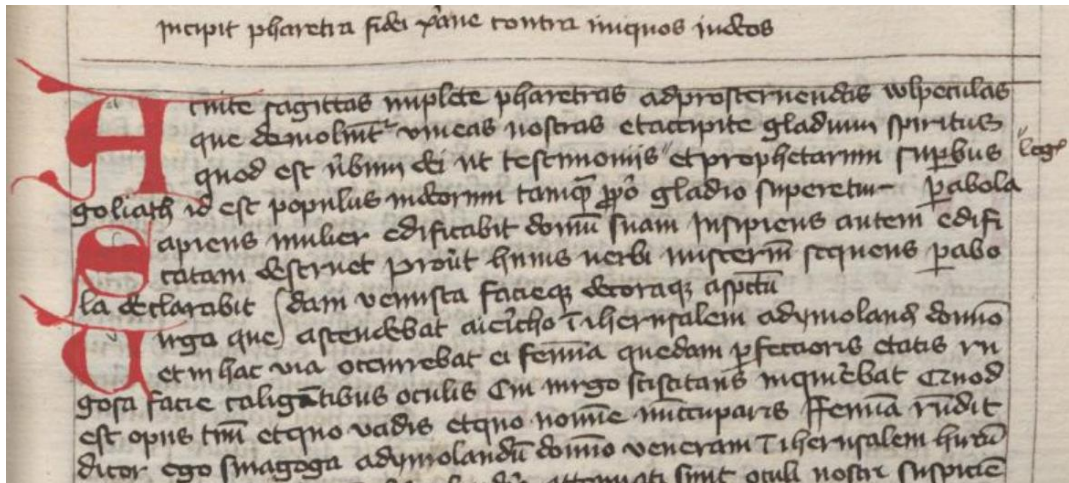 incipit pharetra fidei xp̄iane contra iniquos iudeos
Acuite sagittas implete pharetras ad prosternendas wlpeculas
que demoliūt vineas nostras et accipite gladium spiritus
quod est ūbum dei ut testimoniis" et prophetarum suꝑbus "legꝭ
goliath id est populus iudeorum tamq̄ ꝓpo gladio superetur ꝑabola
Sapiens mulier edificabit domū suam Insipiens autem edifi
catam destruet Prout huius uerbi misteriū sequens ꝑabo
la declarabit dam venusta facieqꝫ decoraqꝫ aspectu
Uirgo que ascendebat a iericho ī iherusalem ad ymolandū domīo
et in hac via occurrebat ei femīa quedam ꝑfectioris etatis ru
gosa facie caligātibus oculis Cui uirgo sciscitans inquirebat Quod
est opus tuū et quo vadis et quo nomīe nūccuparis Femīa rūdit
dicor ego sinagoga ad ymolandū domīo veneram ī iherusalem
attenuati sunt oculi nostri suspiciē